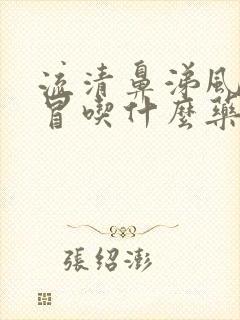 流清鼻涕風
冒喫什麽藥
張紹澎